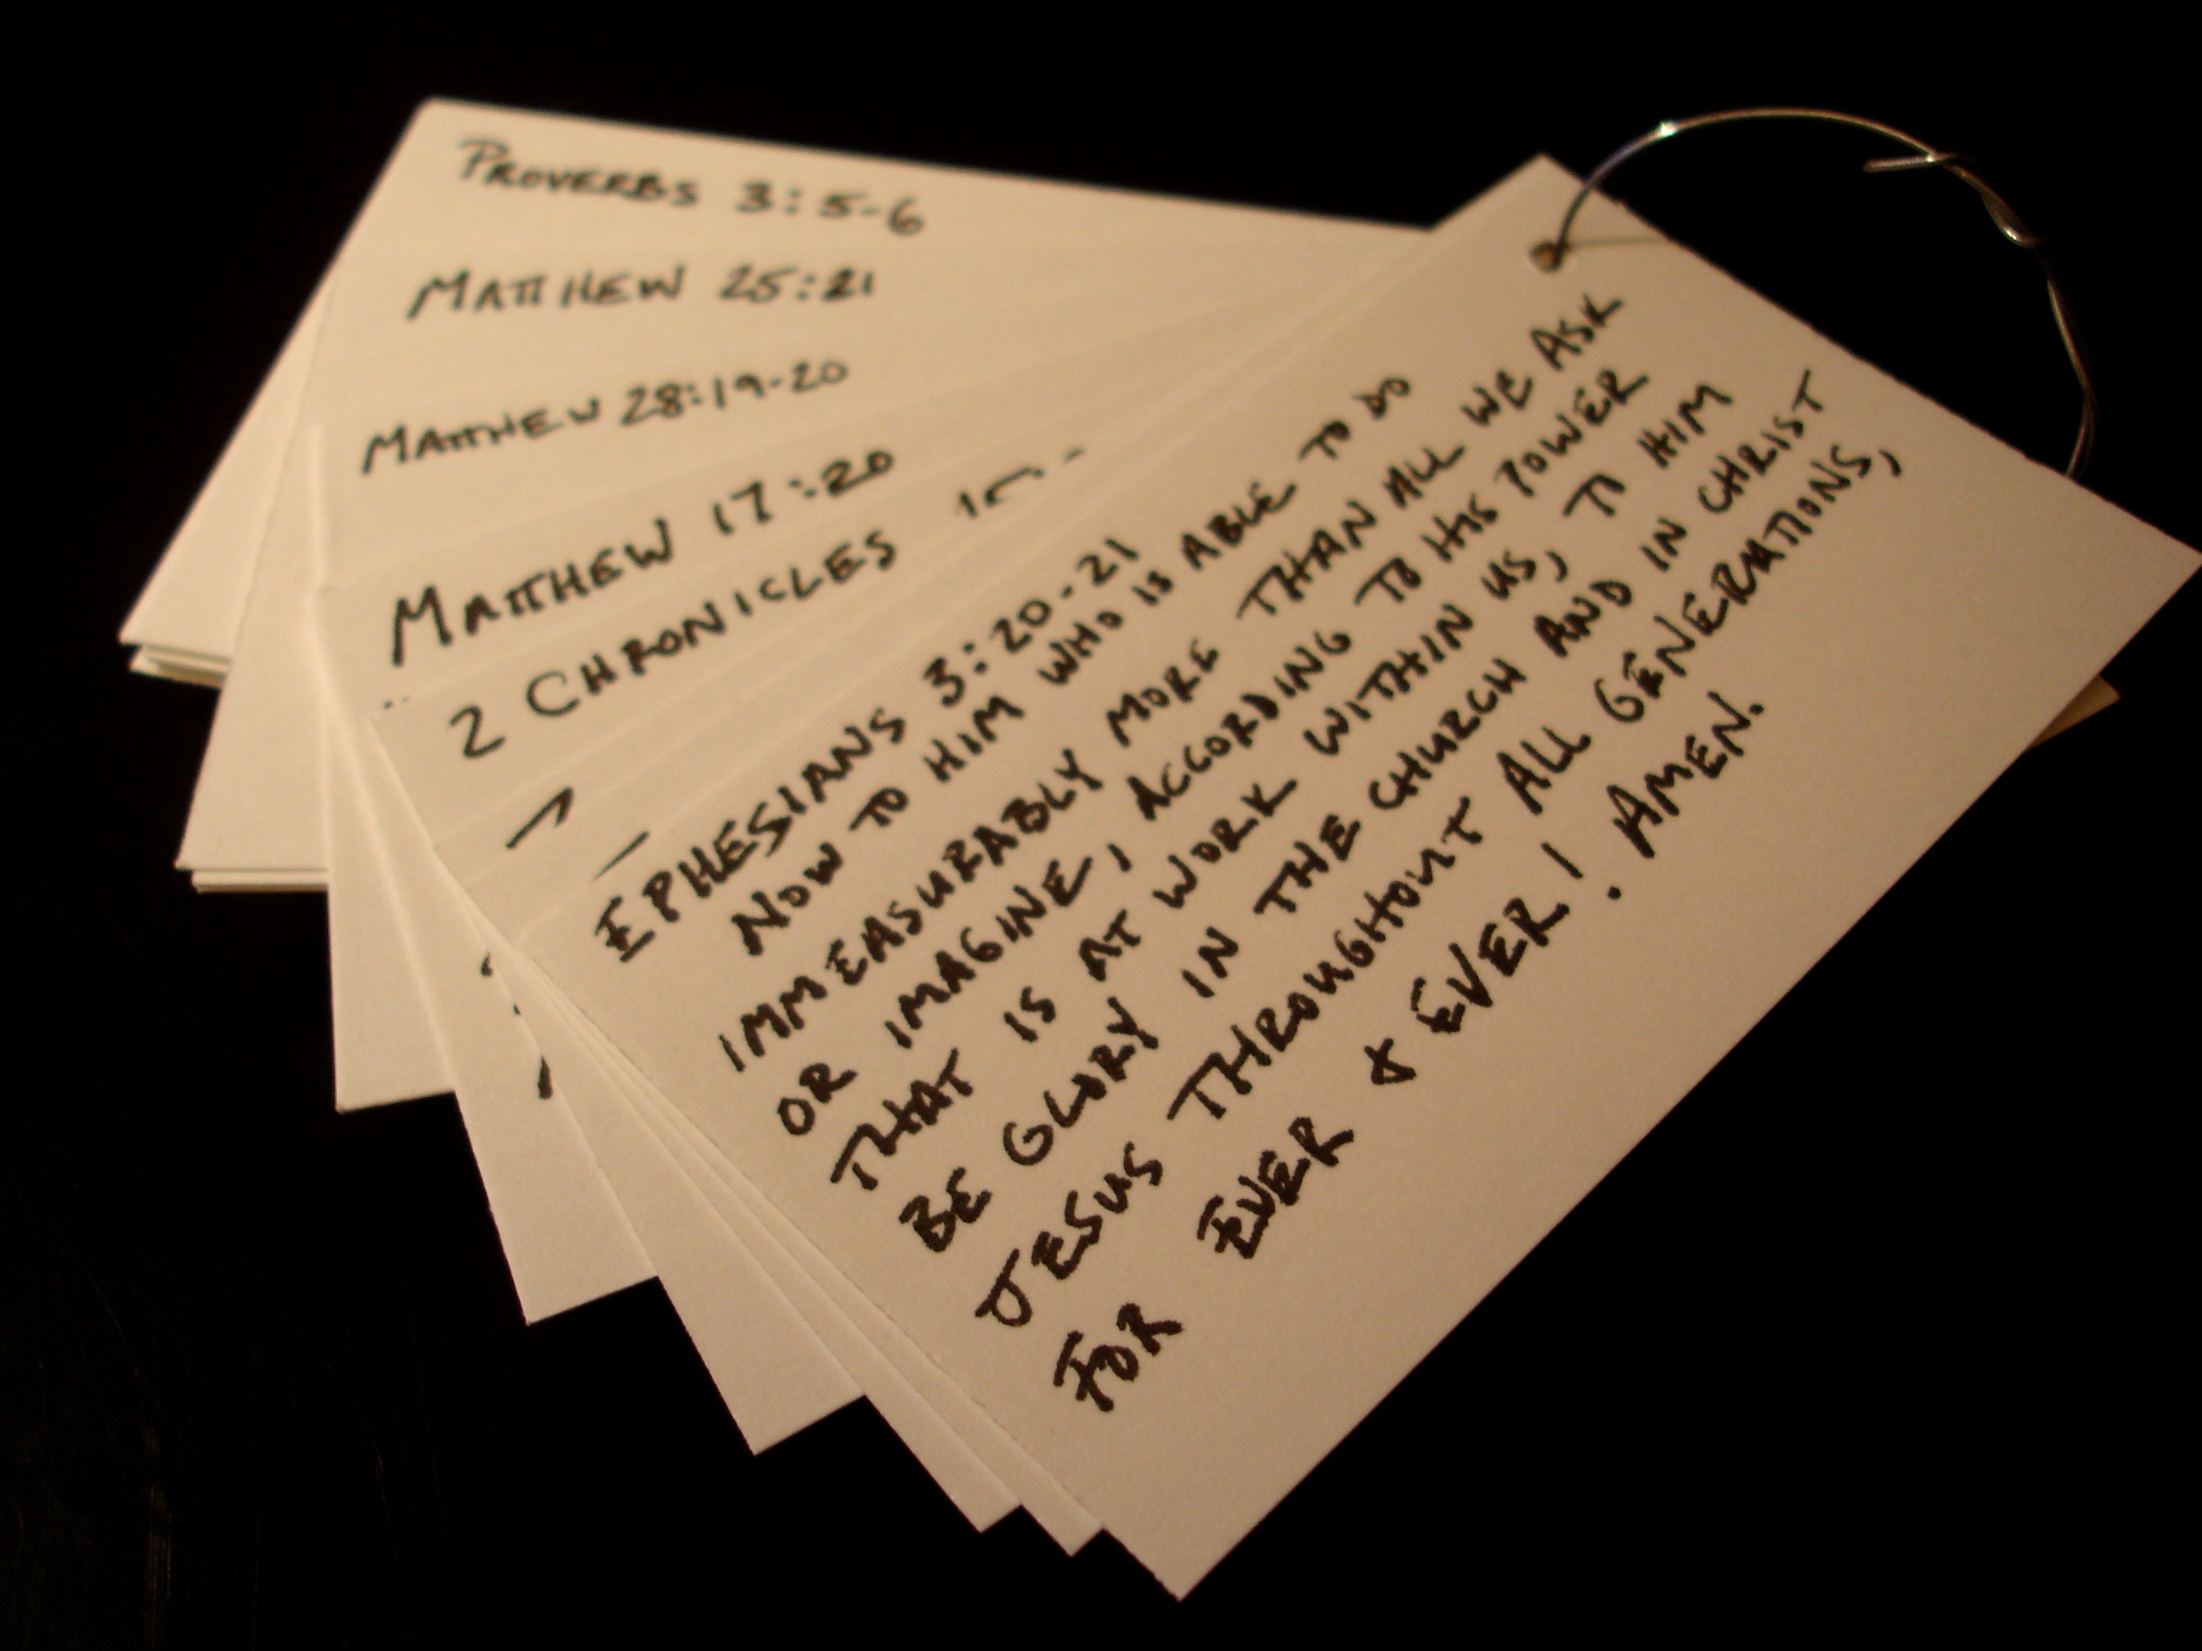 PROVERBS 3:5-6
MATTHEW 25:21
MATTHEW 28:19-20
MATTHEW 17:20
2 CHRONICLES
EPHESIANS 3:20-21
NOW TO HIM WHO IS ABLE TO DO
IMMEASURABLY MORE THAN ALL WE ASK
OR IMAGINE, ACCORDING TO HIS POWER
THAT IS AT WORK WITHIN US, TO HIM
BE GLORY IN THE CHURCH AND IN CHRIST
JESUS THROUGHOUT ALL GENERATIONS,
FOR EVER & EVER! AMEN.